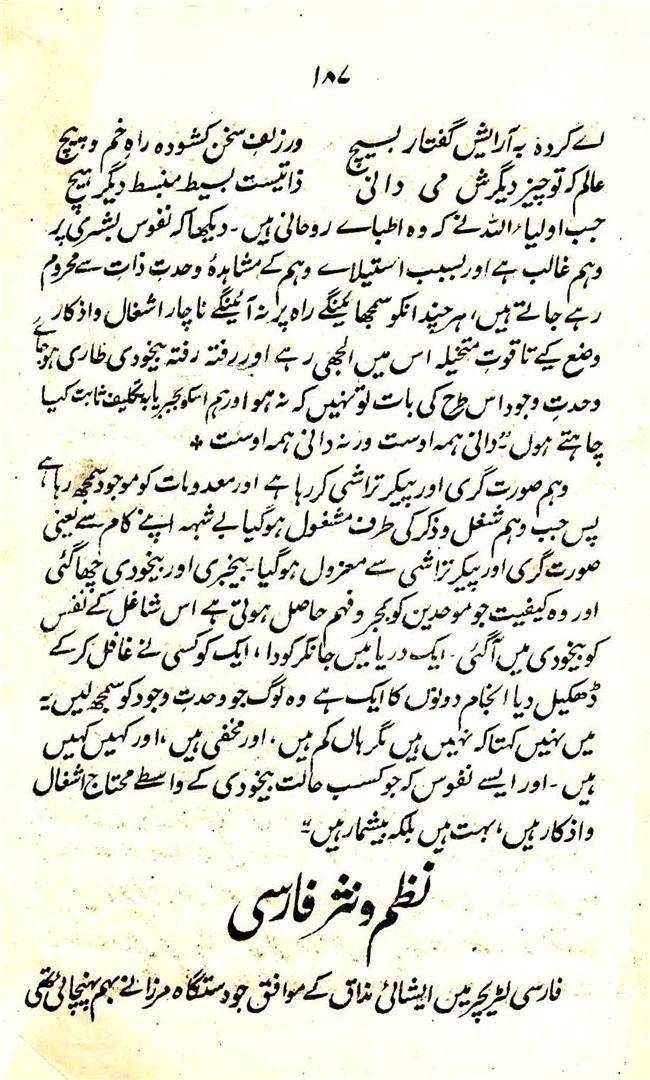 ۱۸۷
اے کردہ بہ آرایش گفتار بسیچ ورزلف سخن کشودہ راہِ خم و پیچ
عالم کہ تو چیز دیگرش می دانی ذاتیست بسیط منبسط دیگر ہیچ
جب اولیاء اللہ نے کہ وہ اطباے روحانی ہیں۔ دیکھا کہ نفوس بشری پر
وہم غالب ہے اور بسبب استیلاے وہم کے مشاہدۂ وحدتِ ذات سے محروم
رہے جاتے ہیں، ہرچند انکو سمجھا ئینگے راہ پر نہ آئینگے ناچار اشغال و اذکار
وضع کیے تا قوتِ متخیلہ اس میں الجھی رہے اور رفتہ رفتہ بیخودی طاری ہو جاے
وحدتِ وجود اس طرح کی بات تو نہیں کہ نہ ہو اور ہم اسکو بجبر یا بہ تکلیف ثابت کیا
چاہتے ہوں "دانی ہمہ اوست ورنہ دانی ہمہ اوست *
وہم صورت گری اور پیکر تراشی کر رہا ہے اور معدومات کو موجود سمجھ رہا ہے
پس جب وہم شغل و ذکر کی طرف مشغول ہو گیا بے شبہہ اپنے کام سے یعنی
صورت گری اور پیکر تراشی سے معزول ہو گیا۔ بیخبری اور بیخودی چھا گئی
اور وہ کیفیت جو موحدین کو بمجرد فہم حاصل ہوتی ہے اس شاغل کے نفس
کو بیخودی میں آ گئی۔ ایک دریا میں جانکر کودا، ایک کو کسی نے غافل کر کے
ڈھکیل دیا انجام دونوں کا ایک ہے وہ لوگ جو وحدتِ وجود کو سمجھ لیں یہ
میں نہیں کہتا کہ نہیں ہیں مگر ہاں کم ہیں، اور مخفی ہیں، اور کہیں کہیں
ہیں۔ اور ایسے نفوس کہ جو کسب حالت بیخودی کے واسطے محتاج اشغال
و اذکار ہیں، بہت ہیں بلکہ بیشمار ہیں"
نظم و نثر فارسی
فارسی لٹریچر میں ایشیائی مذاق کے موافق جو دستگاہ مرزا نے بہم پہنچائی تھی